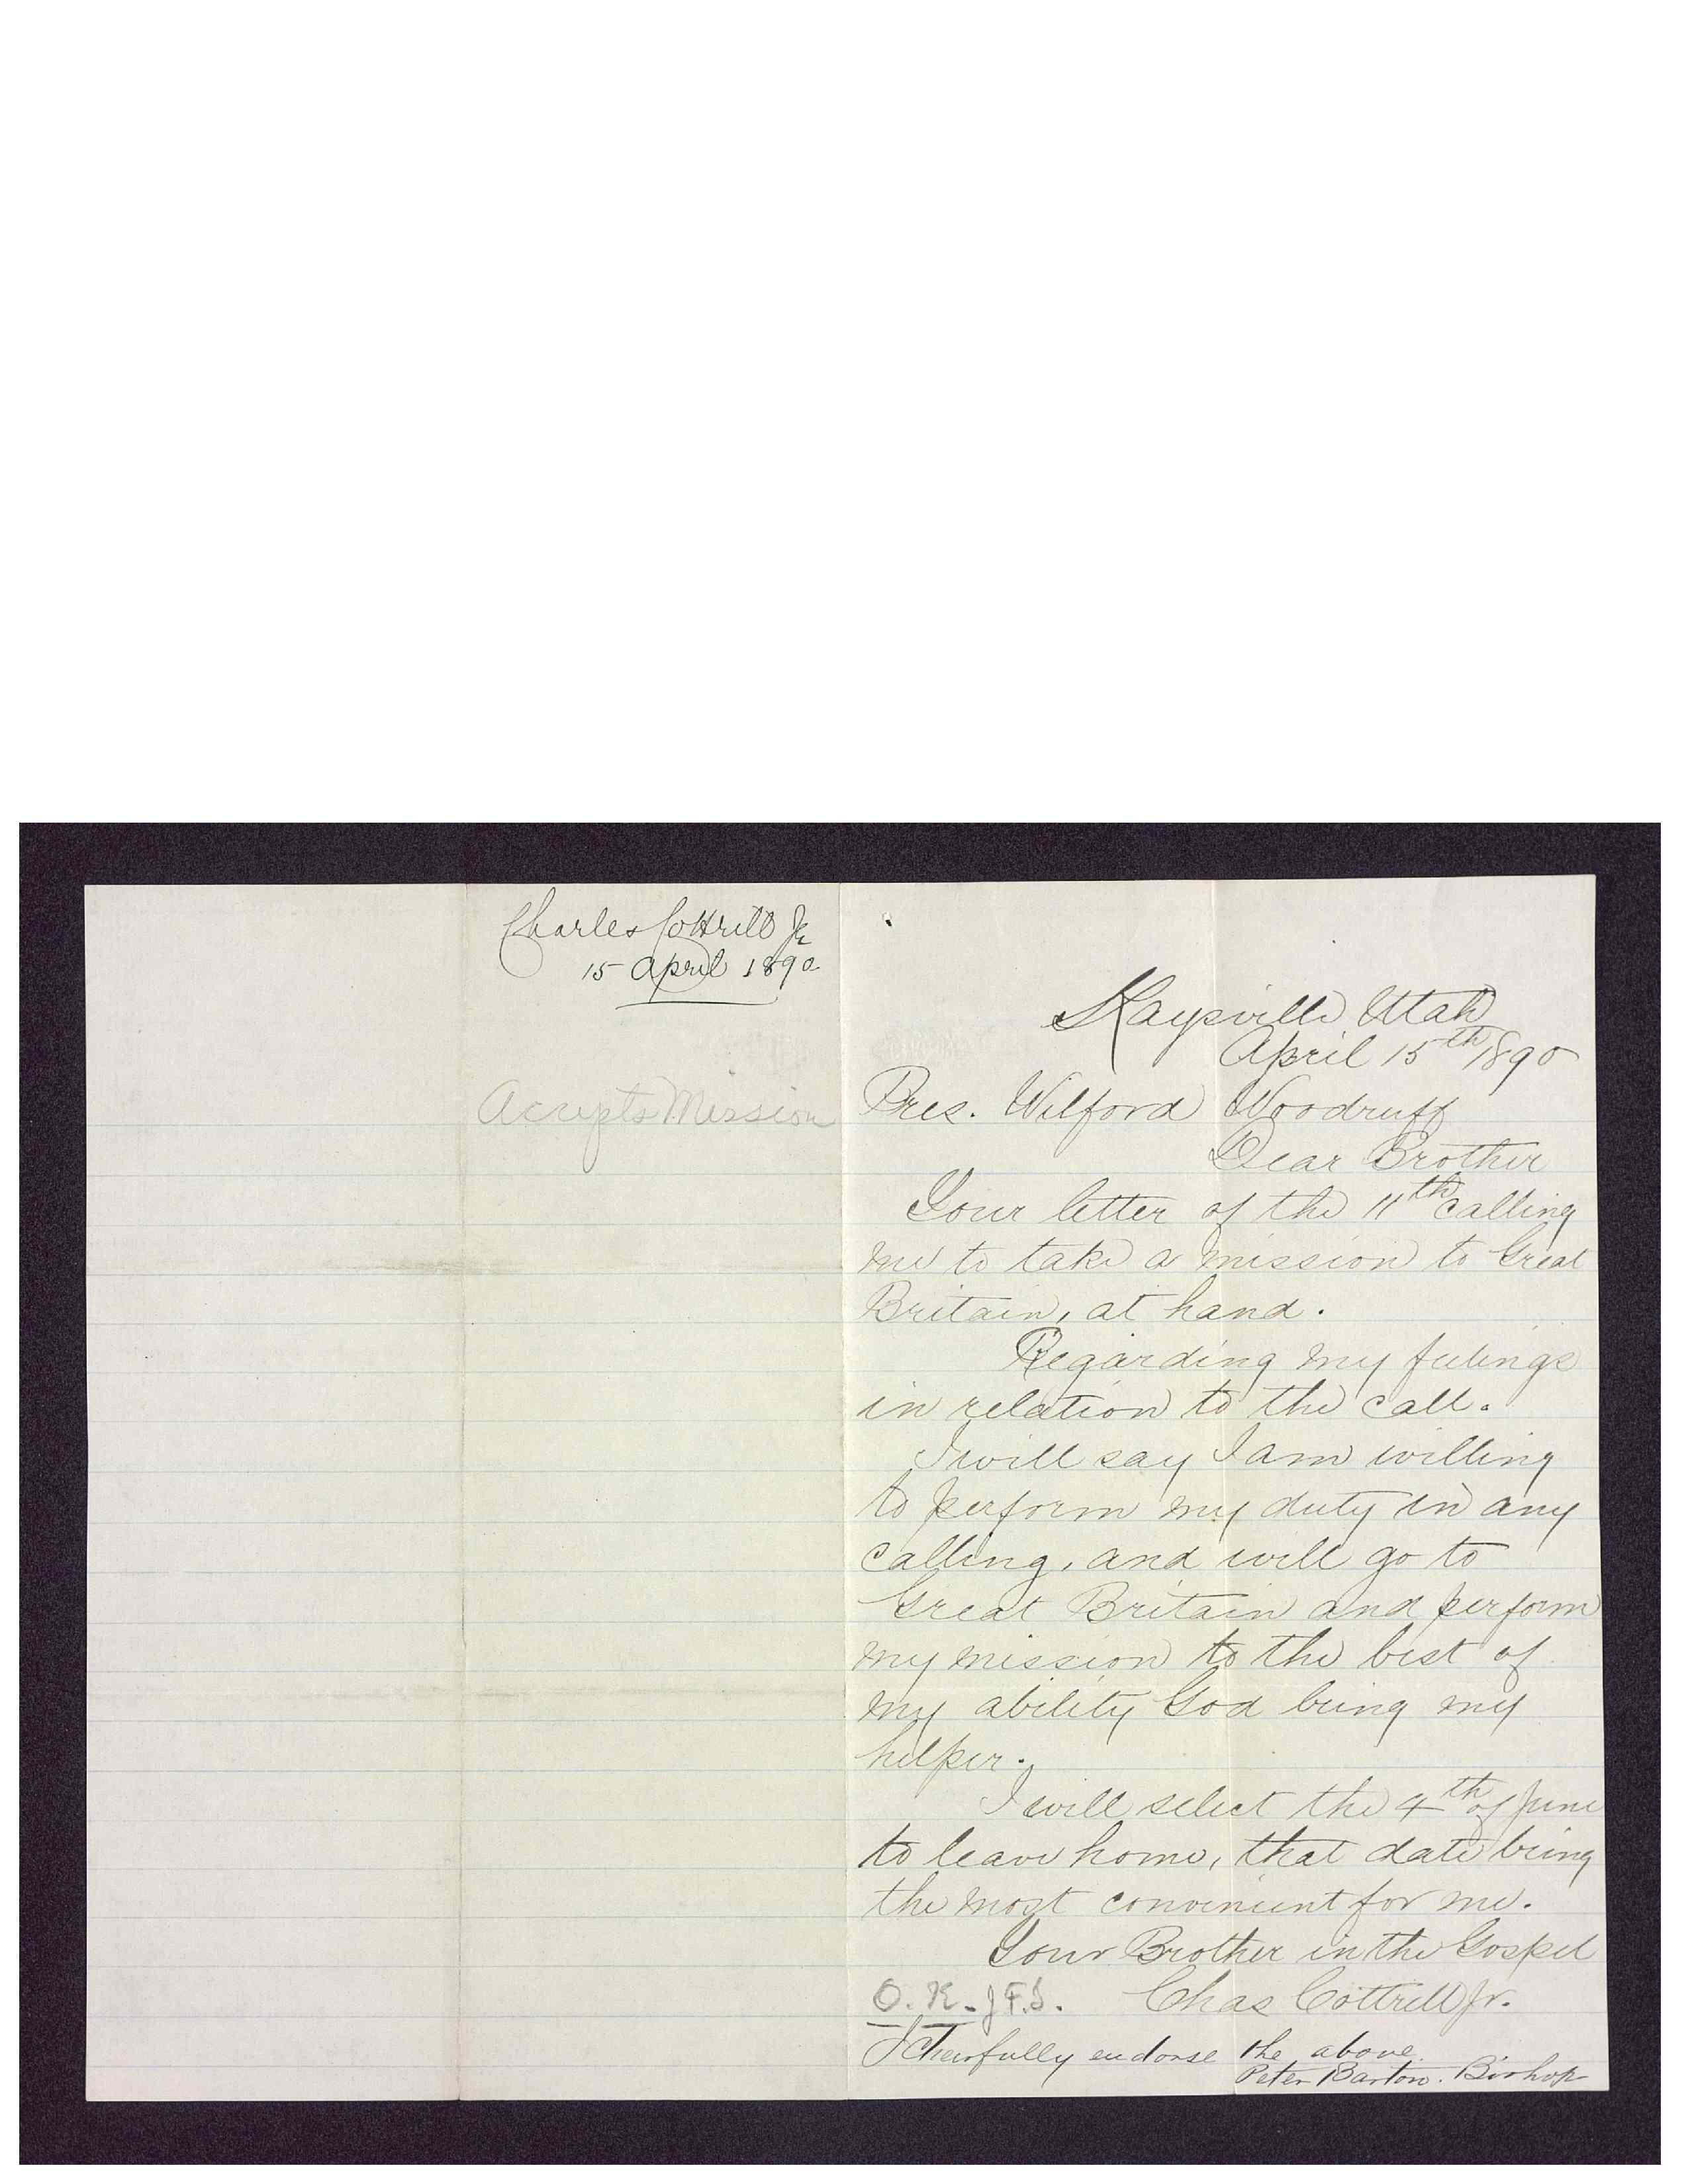 Charles Cottrell Jr
15 April 1890
Accepts Mission
Kaysville Utah
April 15th 1890
Pres. Wilford Woodruff
Dear Brother
Your letter of the 11th calling
me to take a mission to Great
Britain, at hand.
Regarding my feelings
in relation to the call.
I will say I am willing
to perform my duty in any
calling, and will go to
Great Britain and perform
my mission to the best of
my ability God being my
helper.
I will select the 4th of June
to leave home, that date being
the most convinient for me.
Your Brother in the Gospel
O. K. - J F. S. Chas Cottrell Jr.
I Cheerfully endorse the above
Peter Barton. Bishop